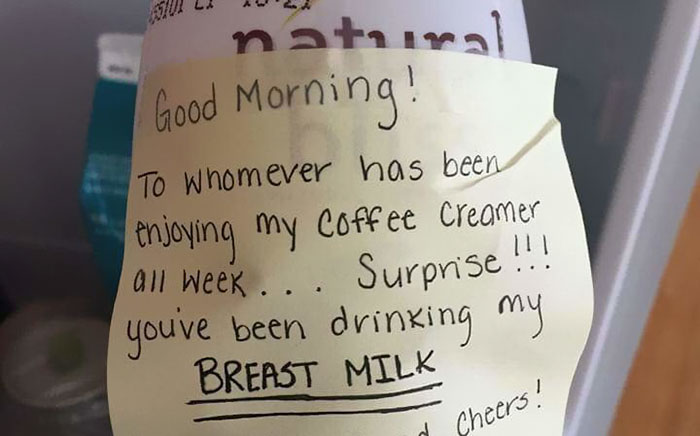 natural
Good Morning!
To Whomever has been
enjoying my Coffee Creamer
all week . . . Surprise!!!
you've been drinking my
BREAST MILK
Cheers!